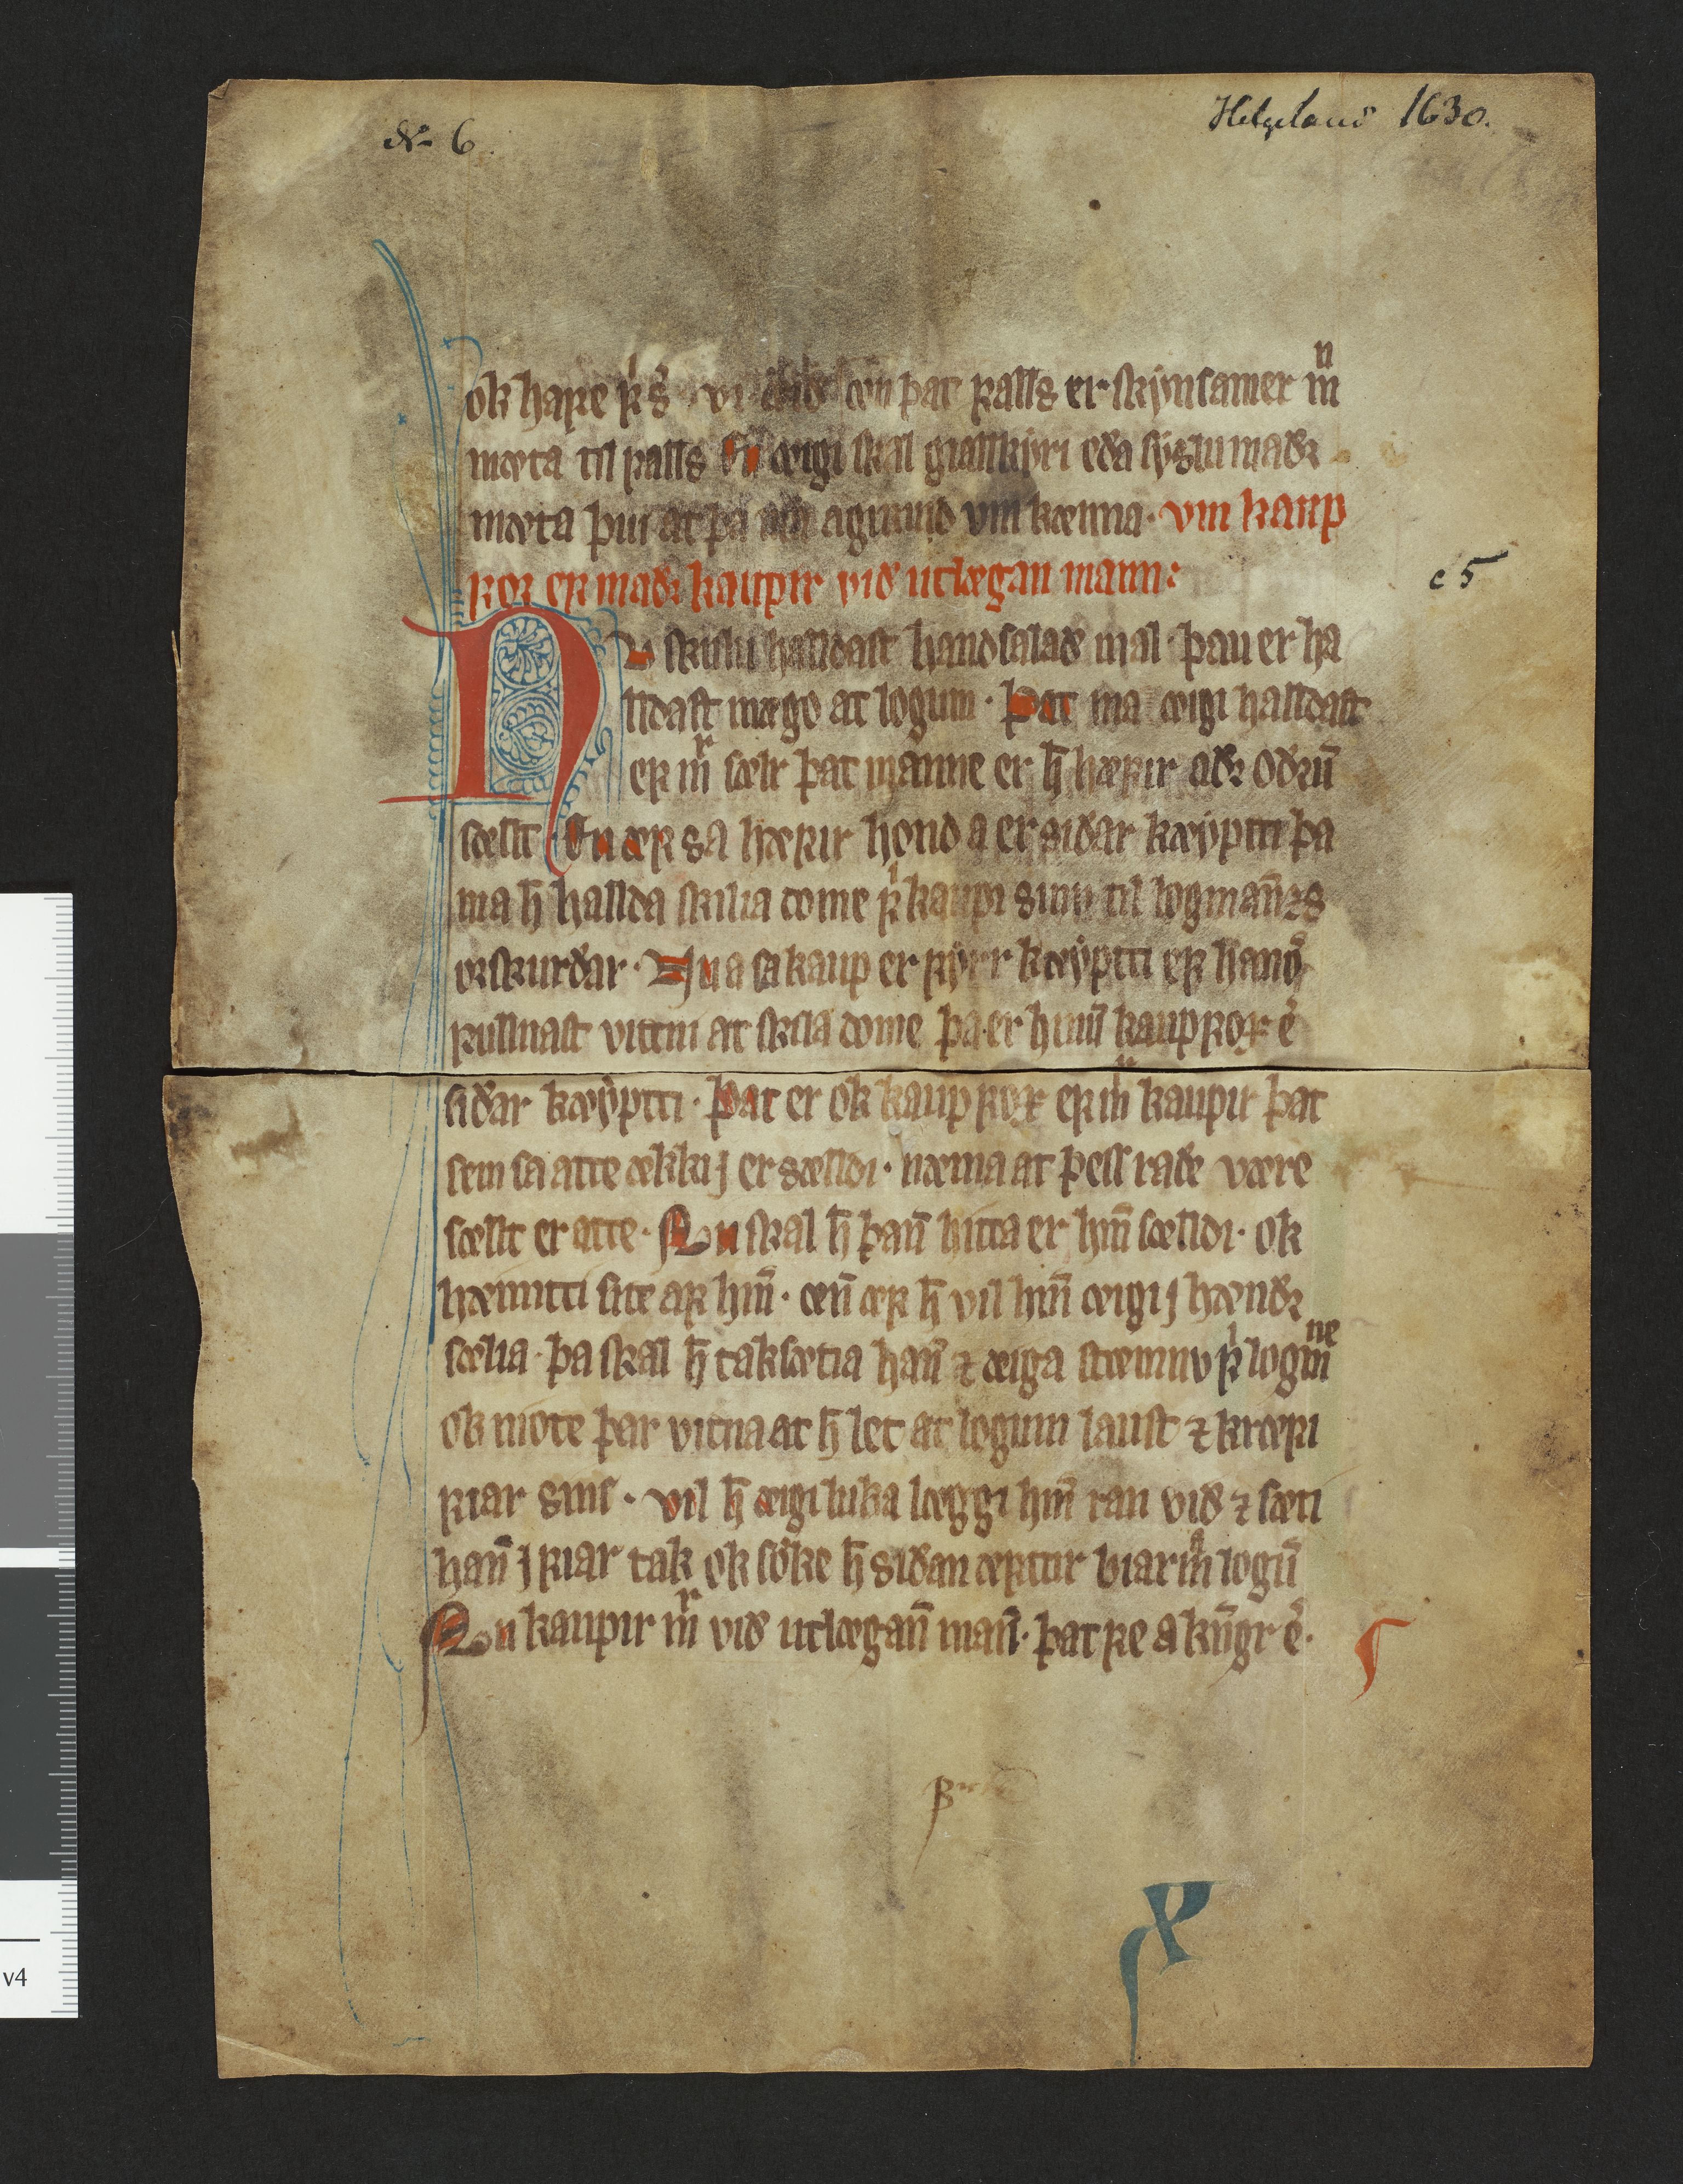 No 6.
Helgeland 1630.
ok hafe f͛ s͛ œin þat falls er skynsamer mn̄
mœta til falls En œigi skal giallkyri eða syslu maðr
mœta þui at þa um kœnna· vm kaup
fox ef maðr kaupir við utlægan mann:
c 5
Nu skulu halldast handsalað mal· þau er ha
lldast mœgo at logum· Þat ma œigi halldast
ef mr sœlr þat manne er h̄ hœfir aðr oðrū
sœllt· En œf sa hœfir hond a er siðar kœyptti þa
ma h̄ hallda skilia dome fͥ kaupi sinu til logman̄zs
orskurðar· En a sa kaup er fyrr kœyptti ef hano̅
fullnast vittni at skila dome þa er hinū kaup fox e͛
siðar kœyptti· Þat er ok kaup fox ef mr kaupir þat
sem sa atte œkki j er sœlldi· nœma at þess raðe være
sœllt er atte· Nu skal h̄ þan̄ hitta er hm̄ sœlldi· ok
hœimtti site af hm̄· œn̄ œf h̄ vil hm̄ œigi j hœndr
sœlia· þa skal h̄ taksœtia han̄ ⁊ œiga stœmnu fͥ logmne
ok niote þar vitna at h̄ let at logum laust ⁊ krœfi
fiar sins· vil h̄ œigi luka lœggi hm̄ ran við ⁊ sœti
han̄ j fiar tak ok söke h̄ siðan œfttir biarm̄ logū
Nu kaupir mr við utlægan̄ man̄· þat fe a kn̄gr e͛·